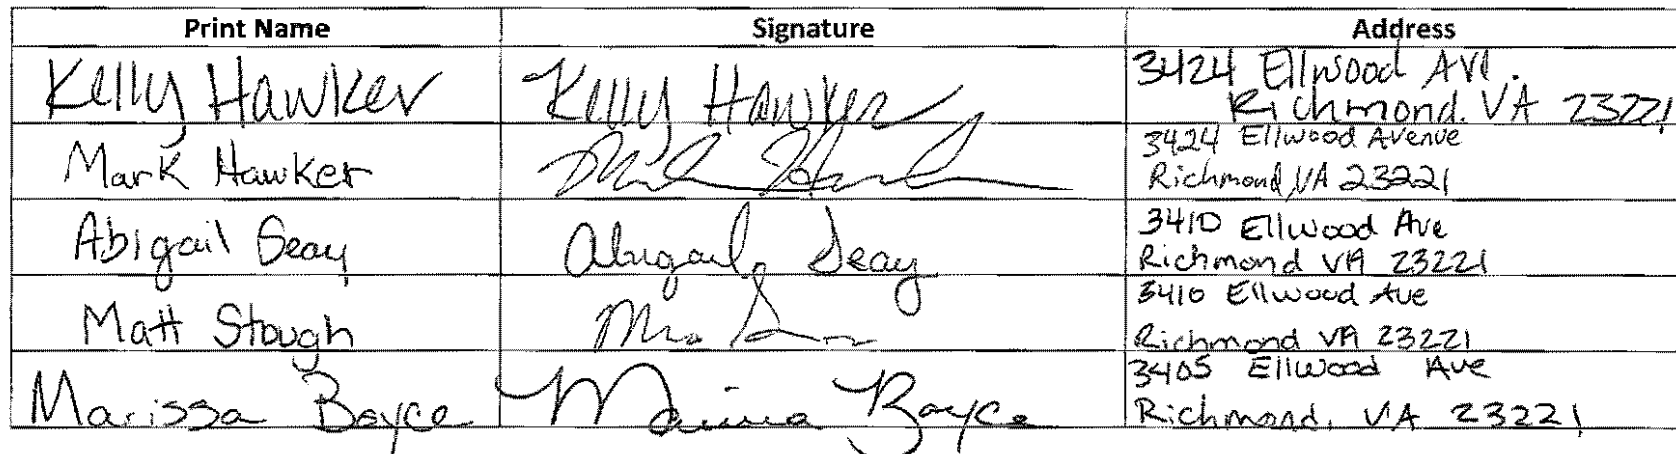 Print Name Signature Address
Kelly Hawker Kelly Hawker 3424 Ellwood Ave.
Richmond. VA 23221
Mark Hawker 3424 Ellwood Avenue
Richmond, VA 23221
Abigail Seay Abigail Seay 3410 Ellwood Ave
Richmond VA 23221
Matt Stough 3410 Ellwood Ave
Richmond VA 23221
Marissa Boyce Marissa Boyce 3405 Ellwood Ave
Richmond, VA 23221